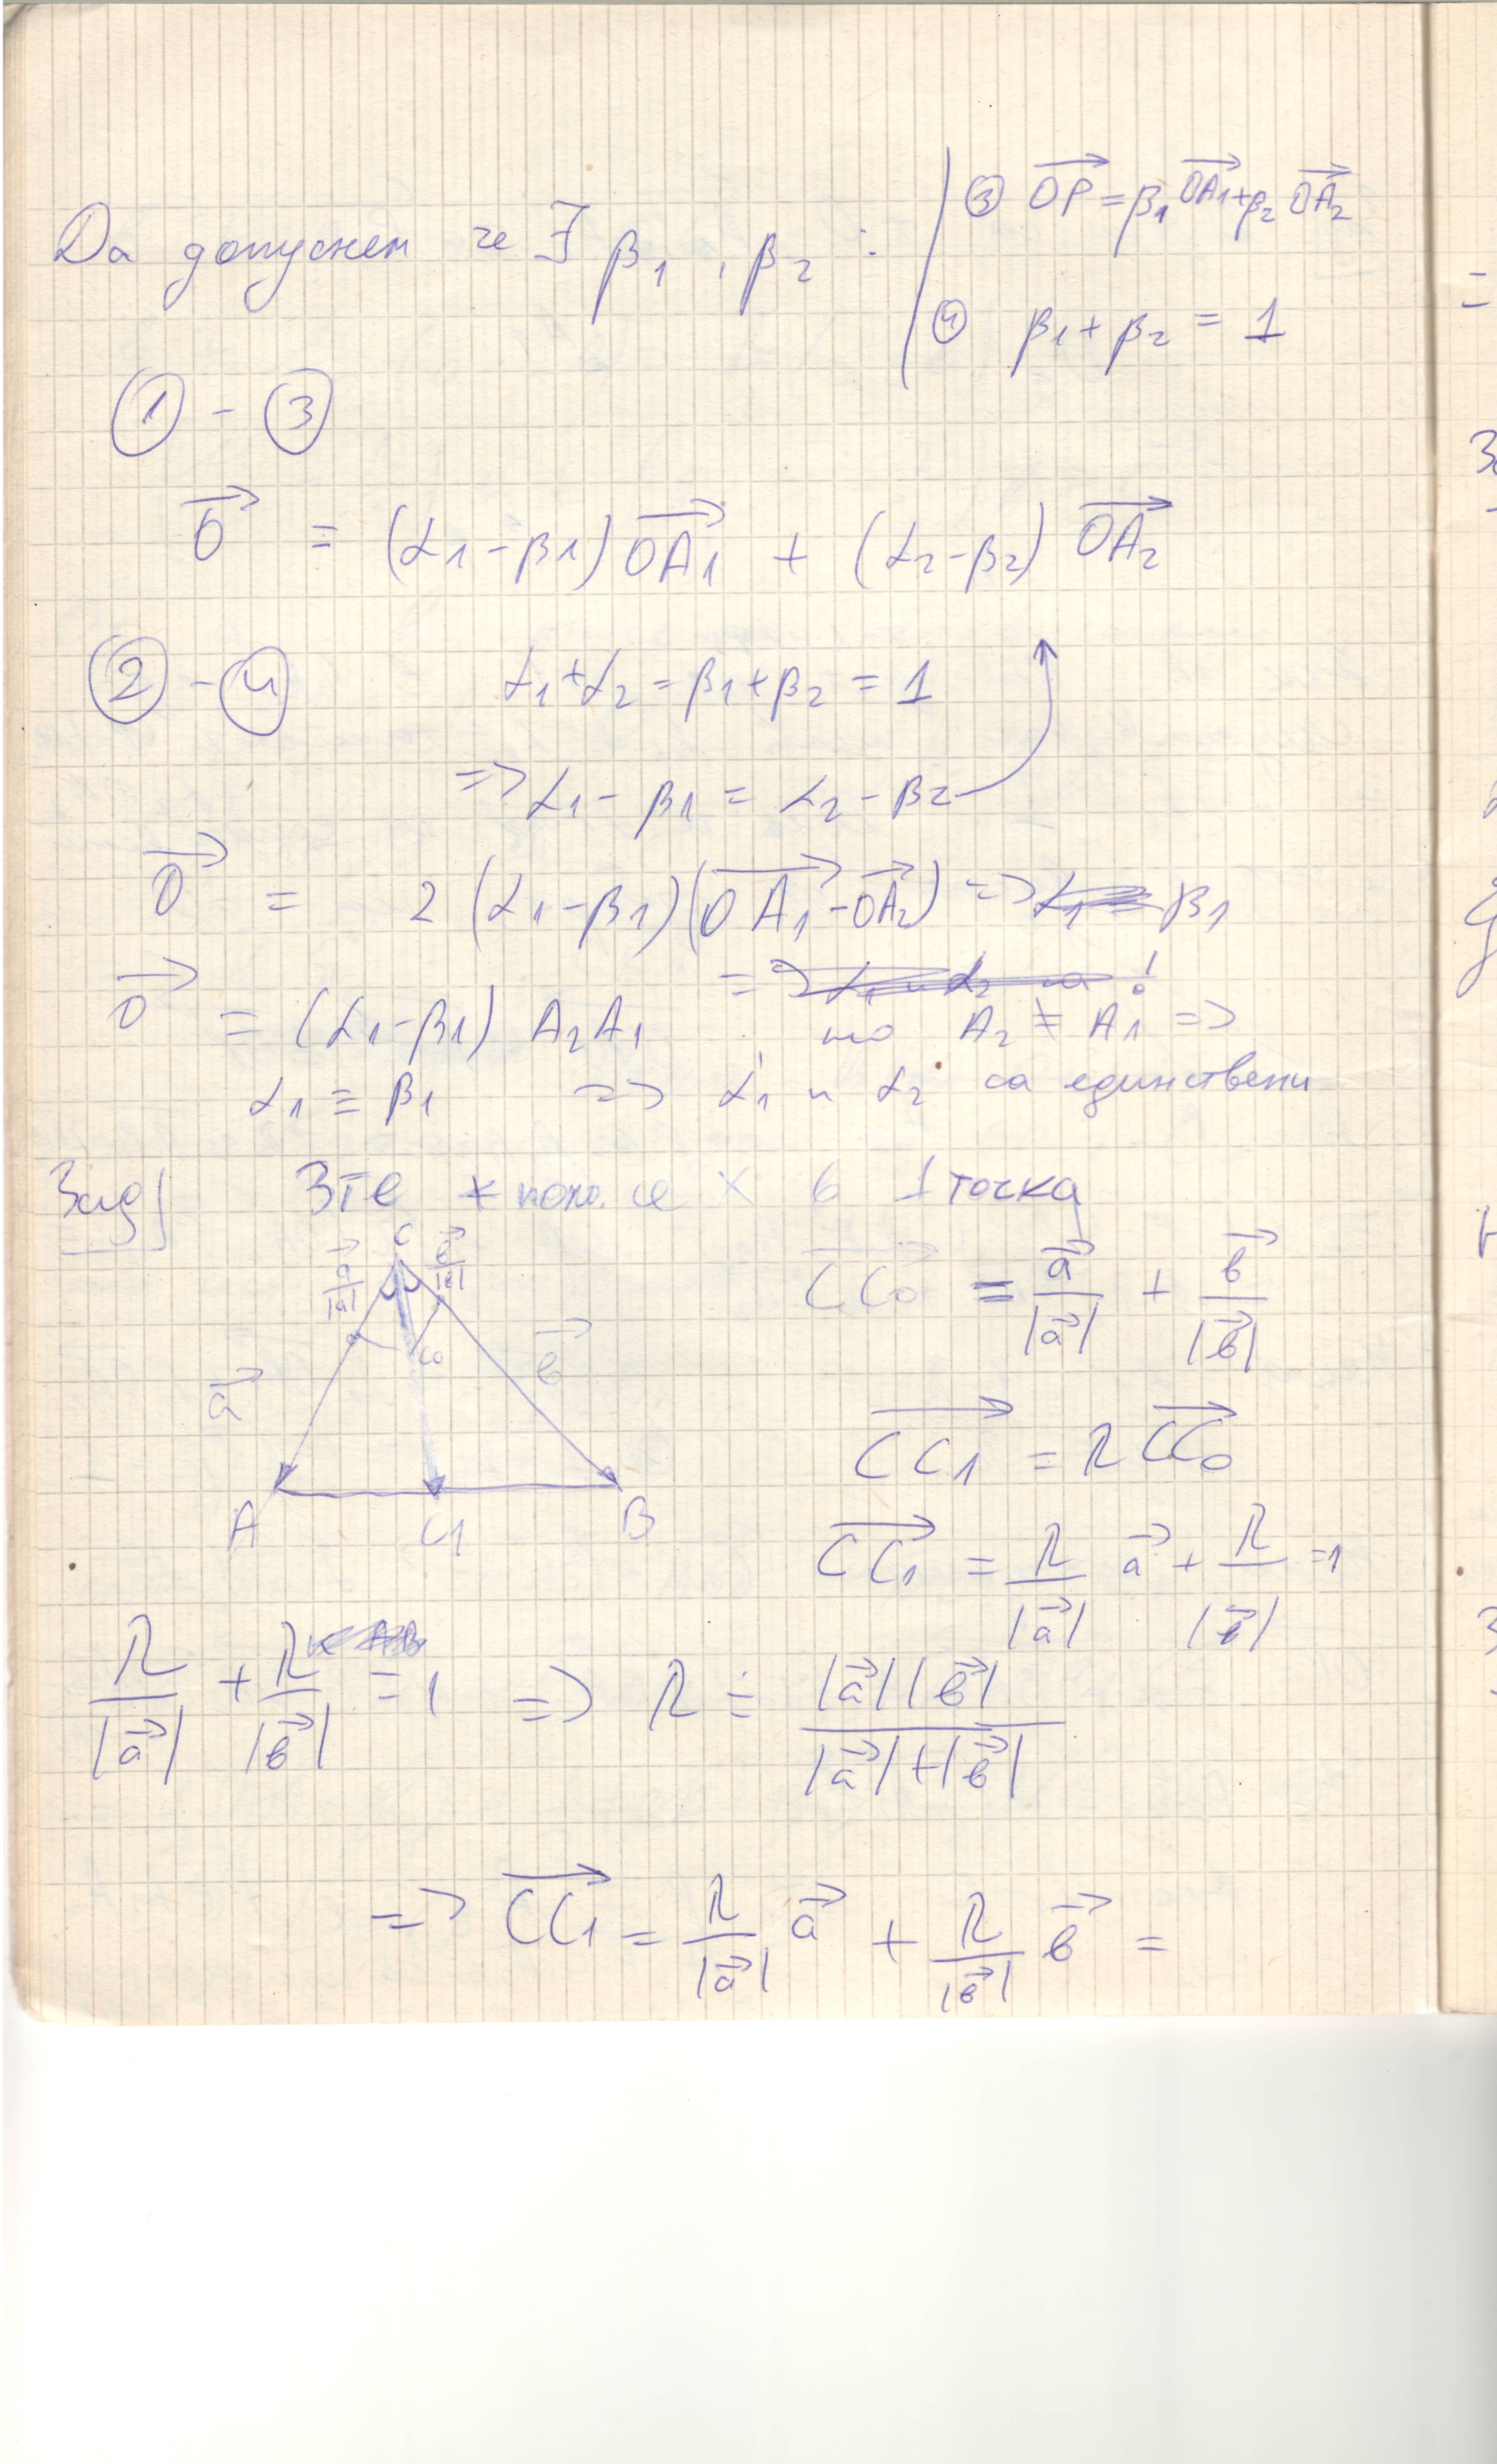 Да допуснем че ∃ β₁, β₂ : | ③ →OP = β₁ →OA₁ + β₂ →OA₂
④ β₁ + β₂ = 1
① - ③
→0 = (α₁-β₁) →OA₁ + (α₂-β₂) →OA₂
② - ④ α₁+α₂ = β₁+β₂ = 1
=> α₁ - β₁ = α₂ - β₂
→0 = 2 (α₁-β₁)(→OA₁ - →OA₂) => β₁
→0 = (α₁-β₁) A₂A₁ но A₂ ≠ A₁ =>
α₁ = β₁ => α₁ и α₂ са единствени
Зад 3те се × в 1 точка
C
→a/|a| →в/|в|
C₀
→a →в
A C₁ B
→CC₀ = →a/|→a| + →в/|→в|
→CC₁ = λ →CC₀
→CC₁ = λ/|→a| →a + λ/|→в| =1
λ/|→a| + λ/|→в| = 1 => λ = |→a||→в| / |→a|+|→в|
=> →CC₁ = λ/|→a| →a + λ/|→в| →в =